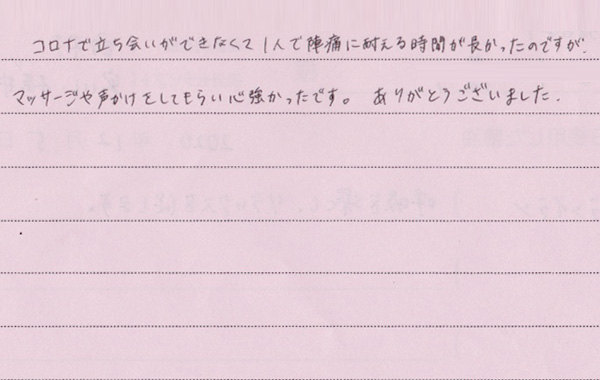 コロナで立ち会いができなくて1人で陣痛に耐える時間が長かったのですが、
マッサージや声かけをしてもらい心強かったです。 ありがとうございました.